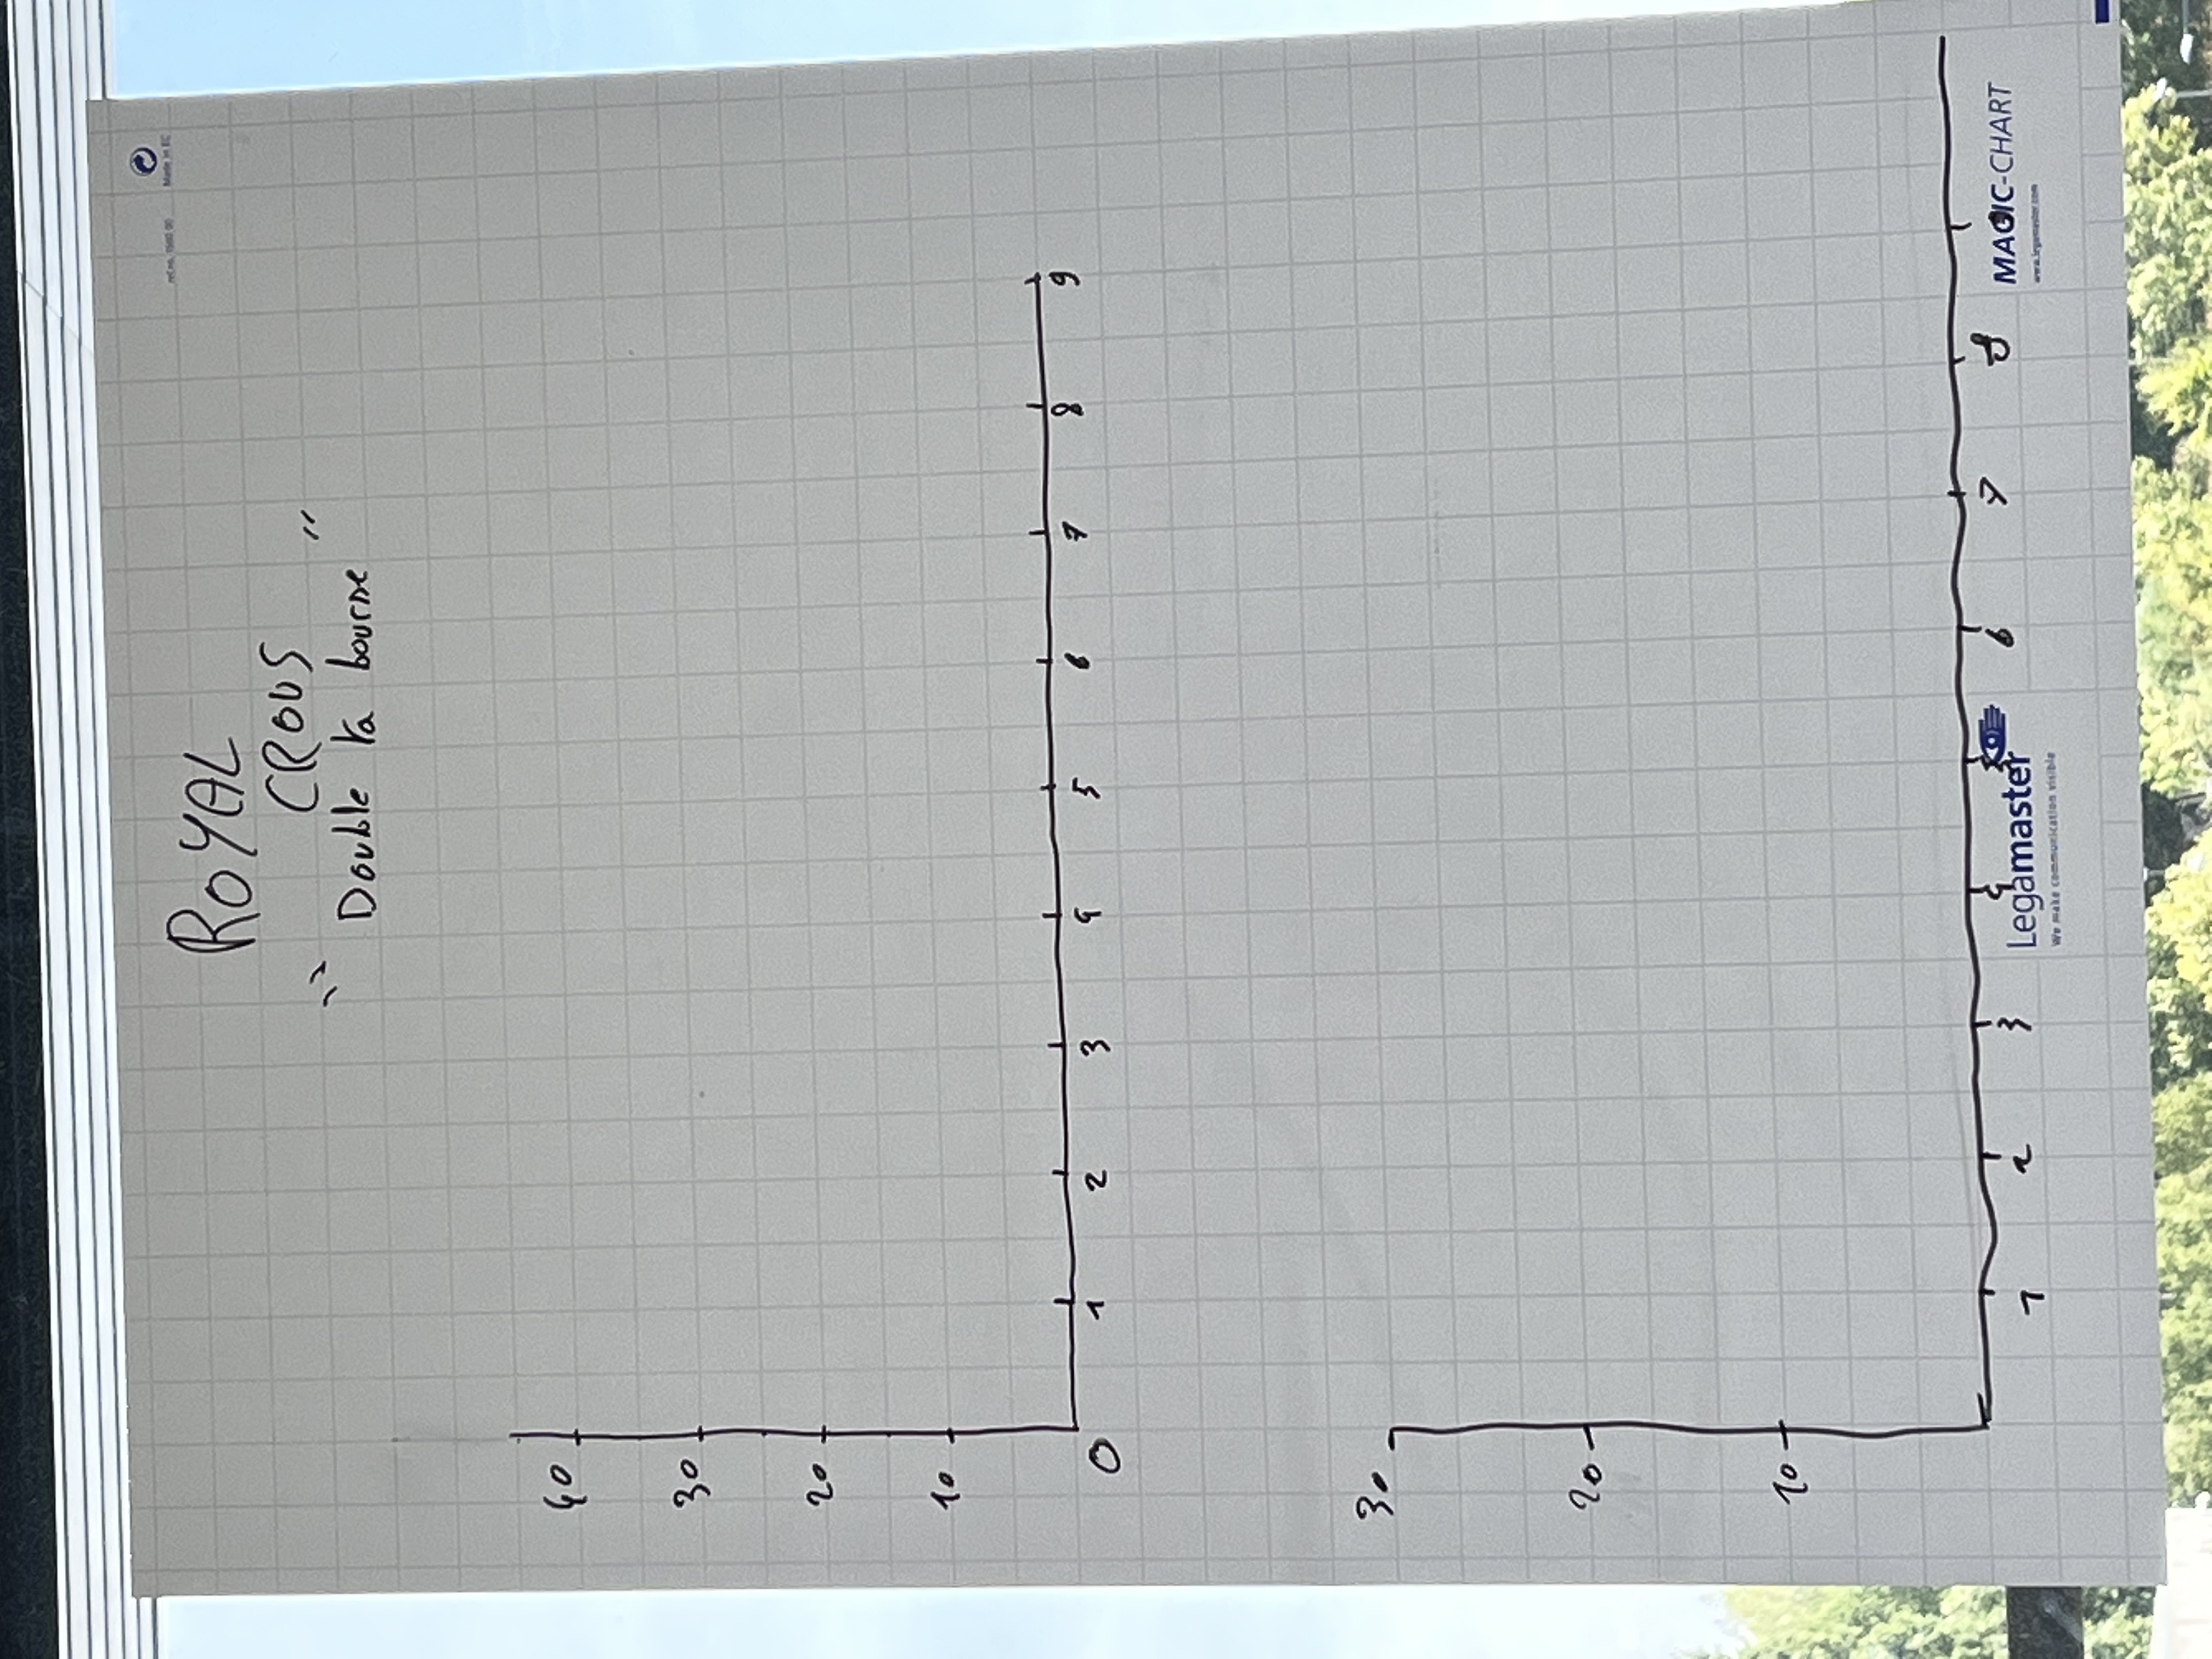 ref.no. 1560 00
Made in EC
ROYAL
CROUS
" Double ta bourse "
40
30
20
10
0 1 2 3 4 5 6 7 8 9
30
20
10
1 2 3 4 5 6 7 8
Legamaster
We make communication visible
MAGIC-CHART
www.legamaster.com